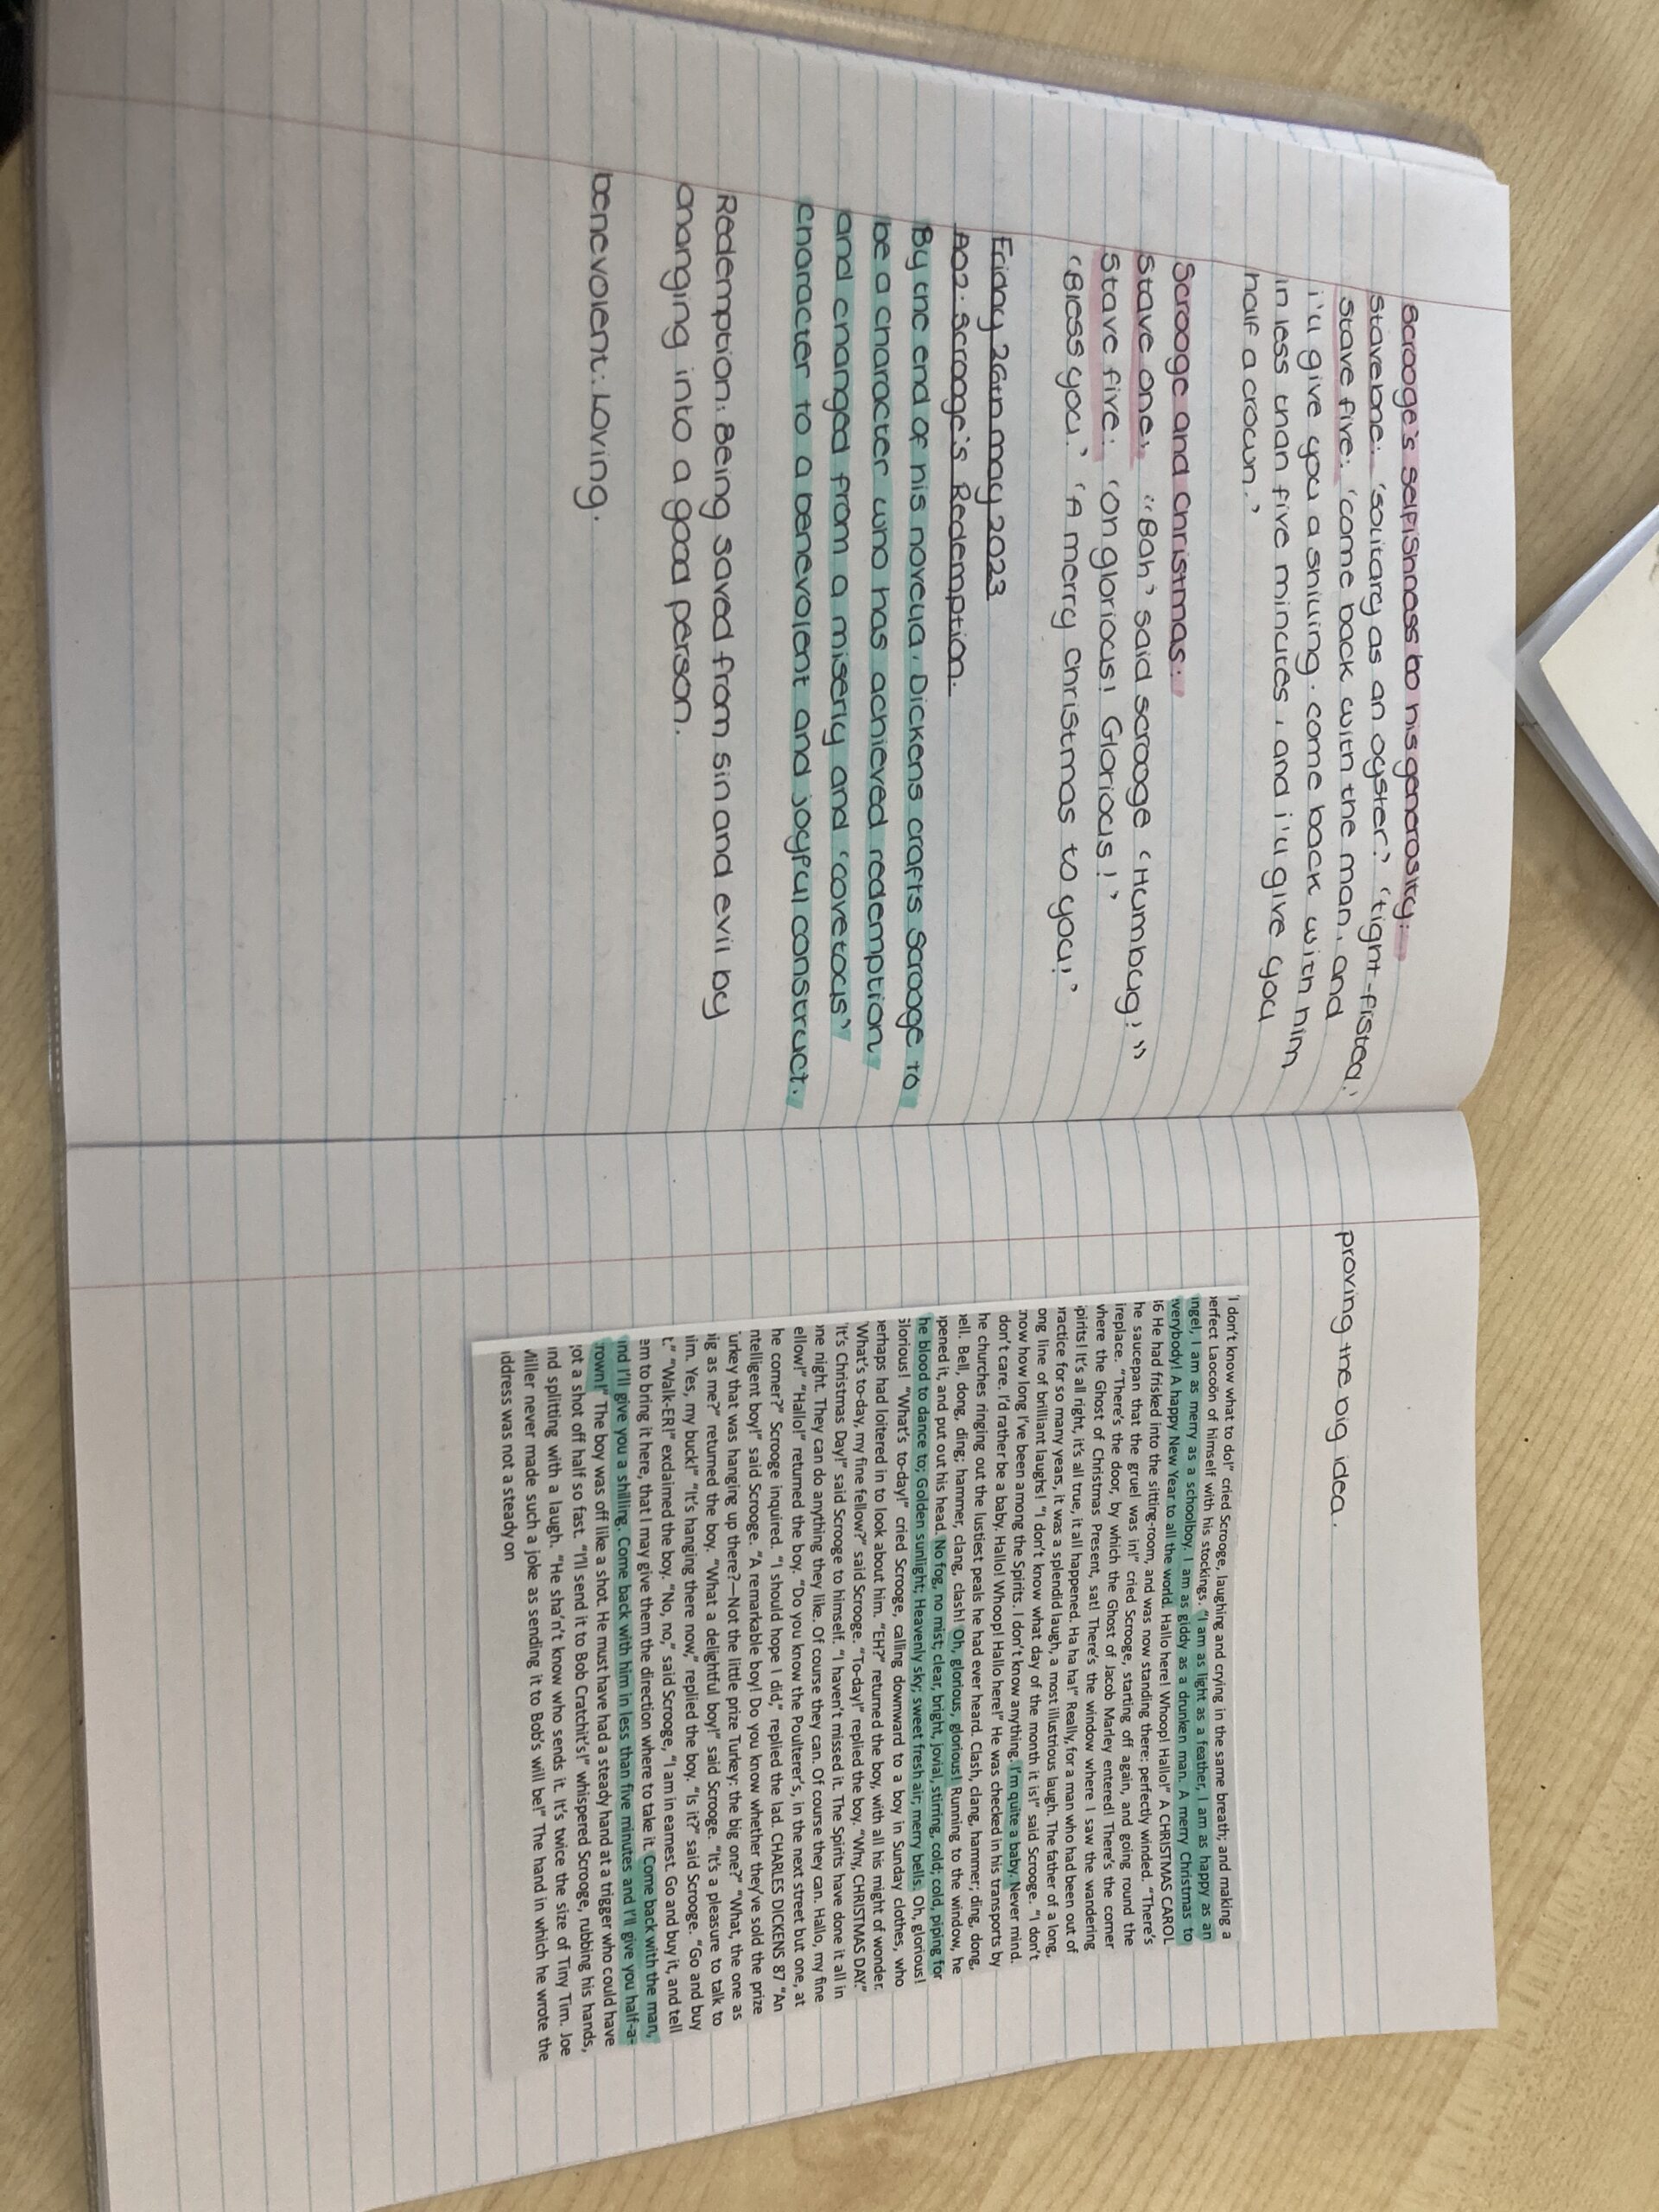 Scrooge's selfishness to his generosity:
Stave one: 'solitary as an oyster' 'tight-fisted'
Stave five: 'come back with the man, and
i'll give you a shilling. come back with him
in less than five minutes, and i'll give you
half a crown.'
Scrooge and Christmas:
Stave one: "Bah' said scrooge 'Humbug!"
Stave five: 'Oh glorious! Glorious!'
'Bless you.' 'A merry christmas to you!'
Friday 26th may 2023
AO2: Scrooge's Redemption.
By the end of his novella, Dickens crafts Scrooge to
be a character who has achieved redemption
and changed from a miserly and 'covetous'
character to a benevolent and joyful construct.
Redemption: Being saved from sin and evil by
changing into a good person.
benevolent: Loving.
proving the big idea.
'I don't know what to do!" cried Scrooge, laughing and crying in the same breath; and making a
perfect Laocoön of himself with his stockings. "I am as light as a feather, I am as happy as an
angel, I am as merry as a schoolboy. I am as giddy as a drunken man. A merry Christmas to
everybody! A happy New Year to all the world. Hallo here! Whoop! Hallo!" A CHRISTMAS CAROL
86 He had frisked into the sitting-room, and was now standing there: perfectly winded. "There's
he saucepan that the gruel was in!" cried Scrooge, starting off again, and going round the
ireplace. "There's the door, by which the Ghost of Jacob Marley entered! There's the corner
where the Ghost of Christmas Present, sat! There's the window where I saw the wandering
pirits! It's all right, it's all true, it all happened. Ha ha ha!" Really, for a man who had been out of
practice for so many years, it was a splendid laugh, a most illustrious laugh. The father of a long,
ong line of brilliant laughs! "I don't know what day of the month it is!" said Scrooge. "I don't
now how long I've been among the Spirits. I don't know anything. I'm quite a baby. Never mind.
don't care. I'd rather be a baby. Hallo! Whoop! Hallo here!" He was checked in his transports by
he churches ringing out the lustiest peals he had ever heard. Clash, clang, hammer; ding, dong,
bell. Bell, dong, ding; hammer, clang, clash! Oh, glorious, glorious! Running to the window, he
opened it, and put out his head. No fog, no mist; clear, bright, jovial, stirring, cold; cold, piping for
he blood to dance to; Golden sunlight; Heavenly sky; sweet fresh air; merry bells. Oh, glorious!
Glorious! "What's to-day!" cried Scrooge, calling downward to a boy in Sunday clothes, who
perhaps had loitered in to look about him. "EH?" returned the boy, with all his might of wonder.
'What's to-day, my fine fellow?" said Scrooge. "To-day!" replied the boy. "Why, CHRISTMAS DAY."
'It's Christmas Day!" said Scrooge to himself. "I haven't missed it. The Spirits have done it all in
one night. They can do anything they like. Of course they can. Of course they can. Hallo, my fine
ellow!" "Hallo!" returned the boy. "Do you know the Poulterer's, in the next street but one, at
he corner?" Scrooge inquired. "I should hope I did," replied the lad. CHARLES DICKENS 87 "An
ntelligent boy!" said Scrooge. "A remarkable boy! Do you know whether they've sold the prize
Turkey that was hanging up there?—Not the little prize Turkey: the big one?" "What, the one as
big as me?" returned the boy. "What a delightful boy!" said Scrooge. "It's a pleasure to talk to
him. Yes, my buck!" "It's hanging there now," replied the boy. "Is it?" said Scrooge. "Go and buy
t." "Walk-ER!" exclaimed the boy. "No, no," said Scrooge, "I am in earnest. Go and buy it, and tell
em to bring it here, that I may give them the direction where to take it. Come back with the man,
and I'll give you a shilling. Come back with him in less than five minutes and I'll give you half-a-
crown!" The boy was off like a shot. He must have had a steady hand at a trigger who could have
got a shot off half so fast. "I'll send it to Bob Cratchit's!" whispered Scrooge, rubbing his hands,
and splitting with a laugh. "He sha'n't know who sends it. It's twice the size of Tiny Tim. Joe
Miller never made such a joke as sending it to Bob's will be!" The hand in which he wrote the
address was not a steady on